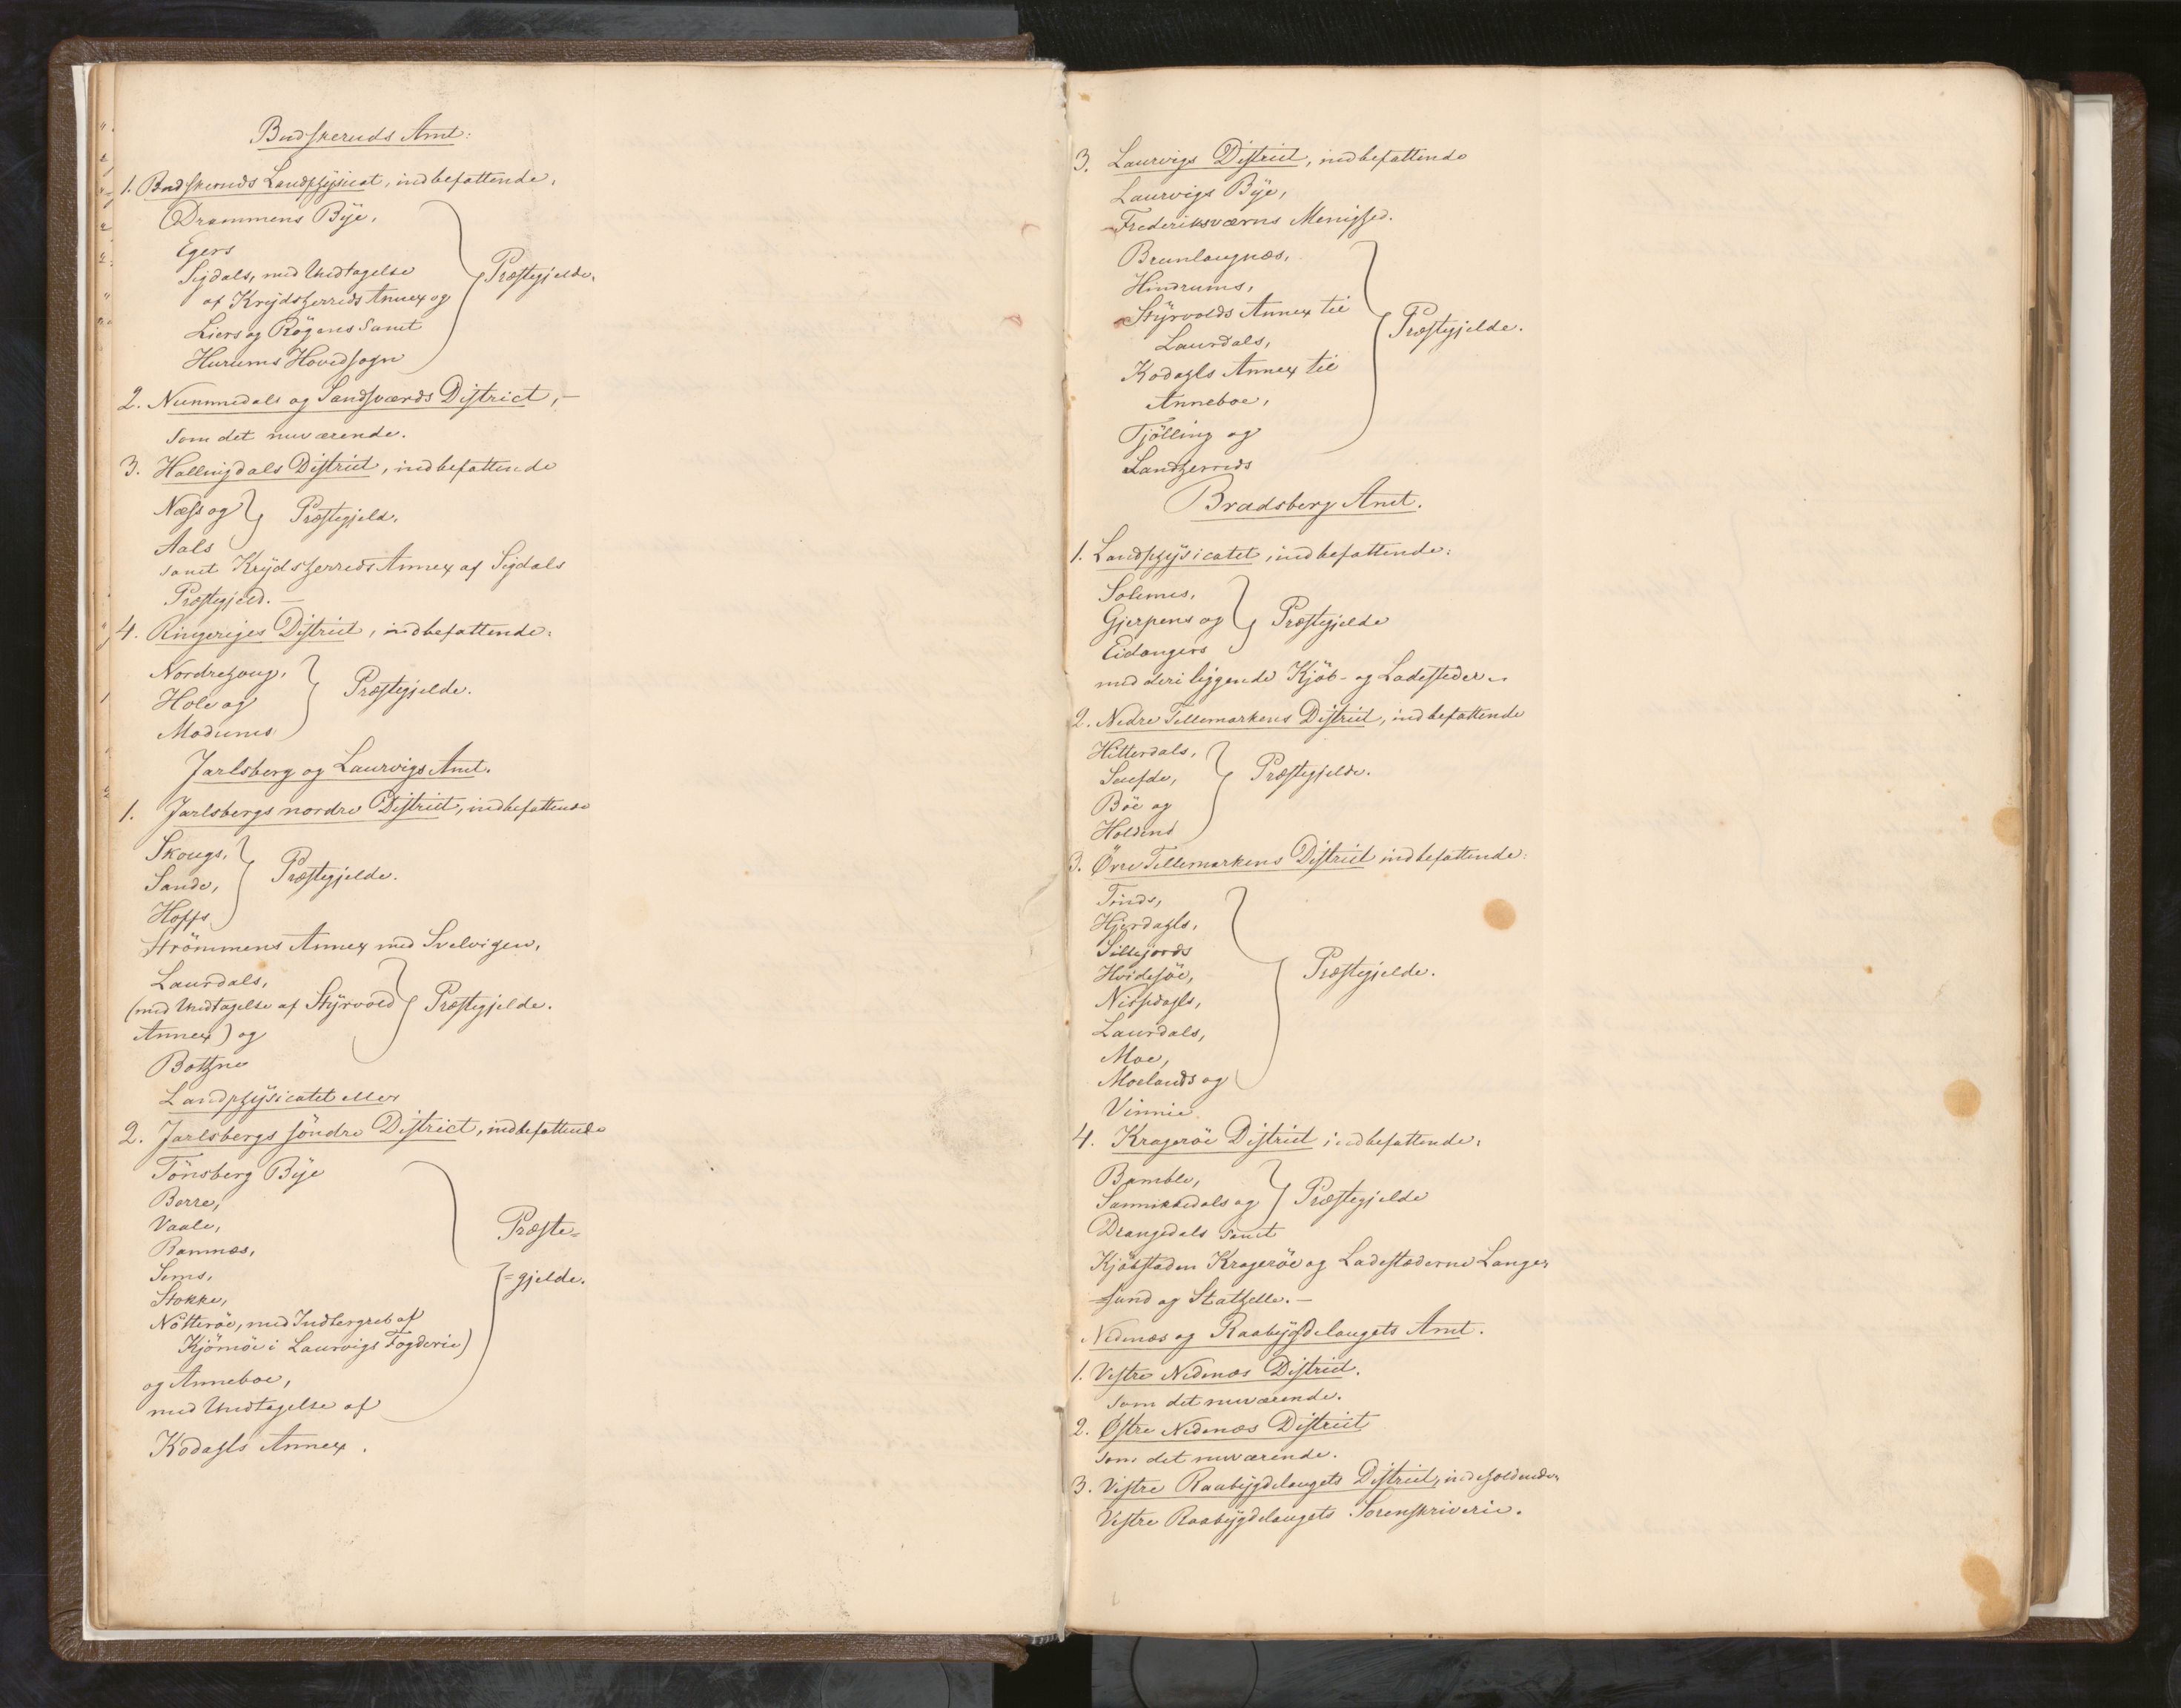 Budskeruds Amt:
1. Budskeruds Landphysicat, indbefattende,
Drammens Bÿe,
Egers
Sigdals, med Undtagelse
af Krÿdsherreds Annex og
Præstegjelde,
Liers og Rögens samt
Hurums Hovedsogn
2. Nummedals og Sandsværds District, –
som det nuværende.
3. Hallingdals District, indbefattende
Næss og
Præstegjeld,
Aals
samt Krÿdsherreds Annex af Sigdals
Præstegjeld. –
4. Ringeriges District, indbefattende:
Nordrehoug,
Hole og
Præstegjelde.
Modums
Jarlsberg og Laurvigs Amt.
1. Jarlsbergs nordre District, indbefattende
Skougs,
Sande,
Præstegjelde.
Hoffs
Strömmens Annex med Svelvigen,
Laurdals,
(med Undtagelse af Stÿrvold
Præstegjelde.
Annex) og
Bothne
Landphÿsicatet eller
2. Jarlsbergs söndre District, indbefattende
Tönsberg Bÿe
Borre,
Vaale,
Ramnæs,
Præste=
Sems,
=gjelde.
Stokke,
Nötteröe, med Indbegreb af
Kjömöe i Laurvigs Fogderie)
og Anneboe,
med Undtagelse af
Kodahls Annex.
3. Laurvigs District, indbefattende
Laurvigs Bÿe,
Frederiksværns Menighed.
Brunlaugnæs,
Hindrums,
Stÿrvolds Annex til
Præstegjelde.
Laurdals,
Kodahls Annex til
Anneboe,
Tjölling og
Landherreds
Bradsberg Amt.
1. Landphÿsicatet, indbefattende:
Solums,
Gjerpens og
Præstegjelde
Eidangers
med deri liggende Kjöb- og Ladesteder.
2. Nedre Tellemarkens District, indbefattende
Hitterdals,
Saufde,
Præstegjelde.
Böe og
Holdens
3. Övre Tellemarkens District indbefattende:
Tinds,
Hjerdahls,
Sillejords
Hvidesöe,
Præstegjelde.
Nissedahls,
Laurdals,
Moe,
Moelands og
Vinnie
4. Krageröe District indbefattende:
Bamble,
Sannikedals og
Præstegjelde
Drangedals samt
Kjöbstaden Krageröe og Ladestæderne Lange-
sund og Stathelle. –
Nedenæs og Raabÿgdelaugets Amt.
1. Vestre Nedenæs District.
som det nuværende.
2. Østre Nedenæs District
som det nuværende.
3. Vestre Raabÿgdelaugets District, indeholdende,
Vestre Raabÿgdelaugets Sorenskriverie.